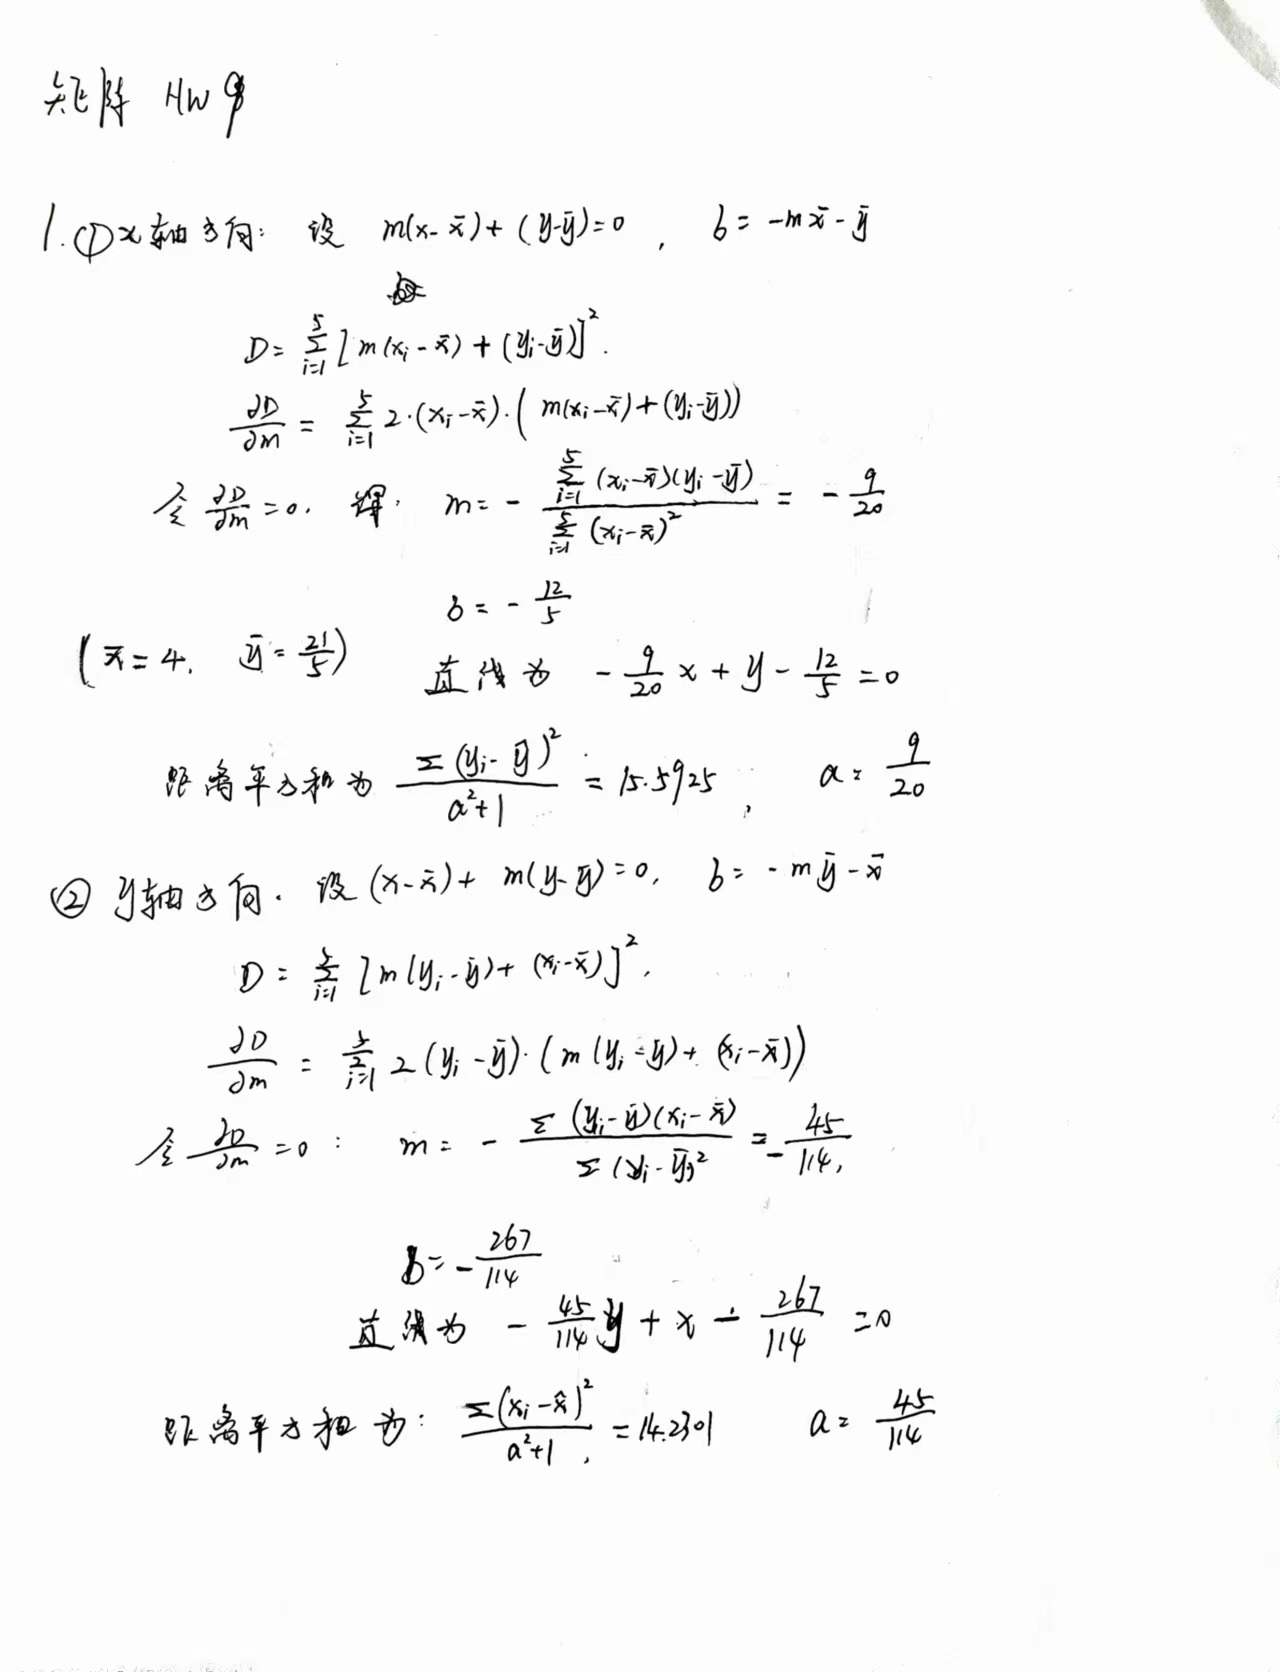 矩阵 HW 9
1. ① x轴方向: 设 m(x-x̄)+(y-ȳ)=0, b=-mx̄-ȳ
D=∑_{i=1}^{5}[m(x_i-x̄)+(y_i-ȳ)]^2.
∂D/∂m = ∑_{i=1}^{5} 2·(x_i-x̄)·(m(x_i-x̄)+(y_i-ȳ))
令 ∂D/∂m=0. 得. m=-∑_{i=1}^{5}(x_i-x̄)(y_i-ȳ)/∑_{i=1}^{5}(x_i-x̄)^2 = -9/20
b=-12/5
(x̄=4, ȳ=21/5) 直线为 -9/20 x+y-12/5=0
距离平方和为 ∑(y_i-ŷ)^2/(a^2+1) = 15.5925, a=9/20
② y轴方向. 设 (x-x̄)+m(y-ȳ)=0, b=-mȳ-x̄
D=∑_{i=1}^{5}[m(y_i-ȳ)+(x_i-x̄)]^2,
∂D/∂m = ∑_{i=1}^{5} 2(y_i-ȳ)·(m(y_i-ȳ)+(x_i-x̄))
令 ∂D/∂m=0: m=-∑(y_i-ȳ)(x_i-x̄)/∑(y_i-ȳ)^2 = -45/114,
b=-267/114
直线为 -45/114 y+x-267/114=0
距离平方和为: ∑(x_i-x̂)^2/(a^2+1), =14.2301 a=45/114